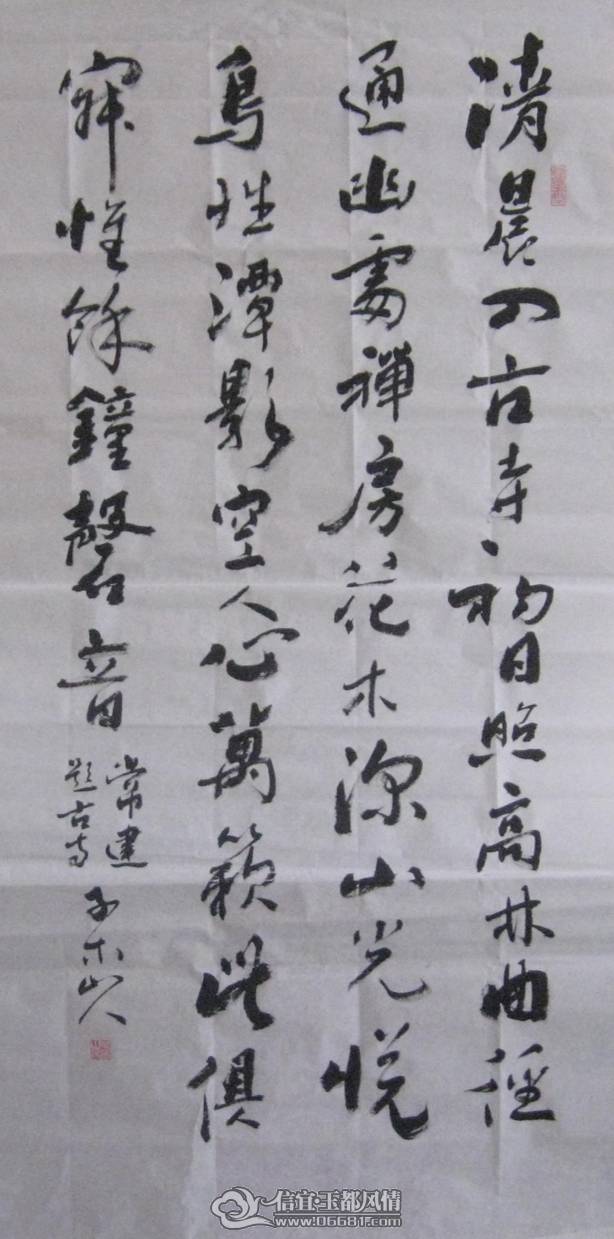 清晨入古寺初日照高林曲径
通幽處禪房花木深山光悦
鳥性潭影空人心萬籟此俱
寂惟餘鐘磬音
常建
題古寺
子木山人
信宜·玉都风情
www.06681.com